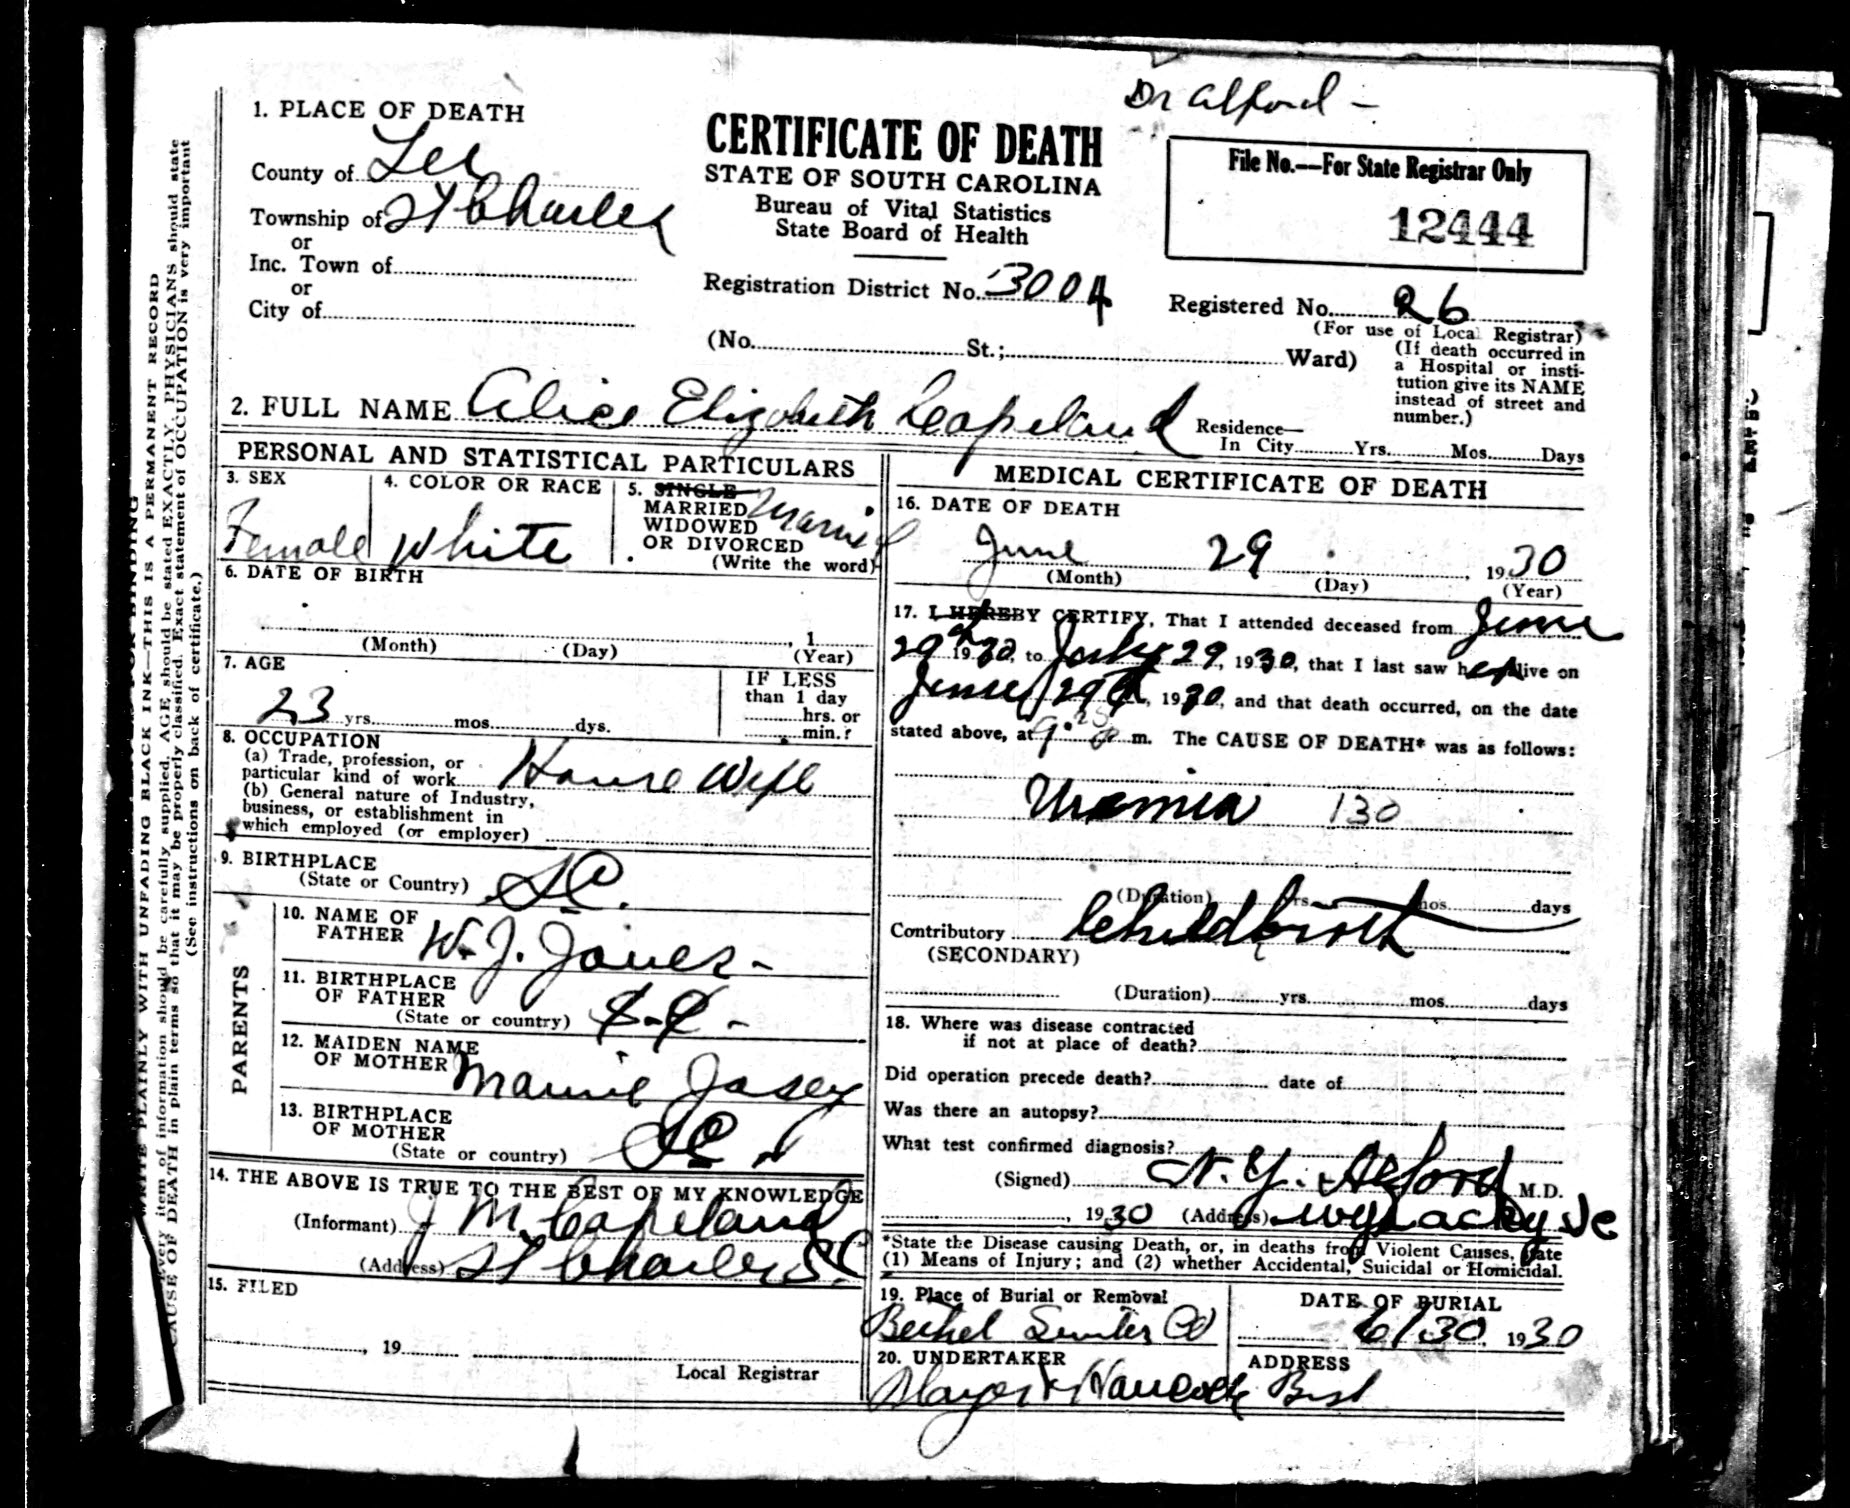 Dr Alford -
1. PLACE OF DEATH
County of Lee
Township of St Charles
or
Inc. Town of
or
City of
CERTIFICATE OF DEATH
STATE OF SOUTH CAROLINA
Bureau of Vital Statistics
State Board of Health
Registration District No. 3004
(No. St.; Ward)
File No.—For State Registrar Only
12444
Registered No. 26
(For use of Local Registrar)
(If death occurred in
a Hospital or insti-
tution give its NAME
instead of street and
number.)
2. FULL NAME Alice Elizabeth Copeland
Residence—
In City Yrs. Mos. Days
PERSONAL AND STATISTICAL PARTICULARS
3. SEX
Female
4. COLOR OR RACE
White
5. SINGLE
MARRIED Married
WIDOWED
OR DIVORCED
(Write the word)
6. DATE OF BIRTH
, 1
(Month) (Day) (Year)
7. AGE
23 yrs. mos. dys.
IF LESS
than 1 day
hrs. or
min.?
8. OCCUPATION
(a) Trade, profession, or
particular kind of work House Wife
(b) General nature of Industry,
business, or establishment in
which employed (or employer)
9. BIRTHPLACE
(State or Country) S C.
PARENTS
10. NAME OF
FATHER W. J. Jones -
11. BIRTHPLACE
OF FATHER
(State or country) S-C -
12. MAIDEN NAME
OF MOTHER Mannie Josey
13. BIRTHPLACE
OF MOTHER
(State or country) SC
14. THE ABOVE IS TRUE TO THE BEST OF MY KNOWLEDGE
(Informant) J M. Copeland
(Address) St Charles S.C
15. FILED
, 19
Local Registrar
MEDICAL CERTIFICATE OF DEATH
16. DATE OF DEATH
June 29, 1930
(Month) (Day) (Year)
17. I HEREBY CERTIFY, That I attended deceased from June
29th 1930, to 29, 1930, that I last saw her alive on
June 29th, 1930, and that death occurred, on the date
stated above, at 9 m. The CAUSE OF DEATH* was as follows:
Uremia 130
(Duration) yrs. mos. days
Contributory Childbirth
(SECONDARY)
(Duration) yrs. mos. days
18. Where was disease contracted
if not at place of death?
Did operation precede death? date of
Was there an autopsy?
What test confirmed diagnosis?
(Signed) Alford M.D.
, 1930 (Address) Wysacky SC
*State the Disease causing Death, or, in deaths from Violent Causes, state
(1) Means of Injury; and (2) whether Accidental, Suicidal or Homicidal.
19. Place of Burial or Removal
Bethel Sumter Co
DATE OF BURIAL
6/30, 1930
20. UNDERTAKER
Hancock
ADDRESS
WRITE PLAINLY WITH UNFADING BLACK INK—THIS IS A PERMANENT RECORD
Every item of information should be carefully supplied. AGE should be stated EXACTLY. PHYSICIANS should state
CAUSE OF DEATH in plain terms so that it may be properly classified. Exact statement of OCCUPATION is very important
(See instructions on back of certificate.)